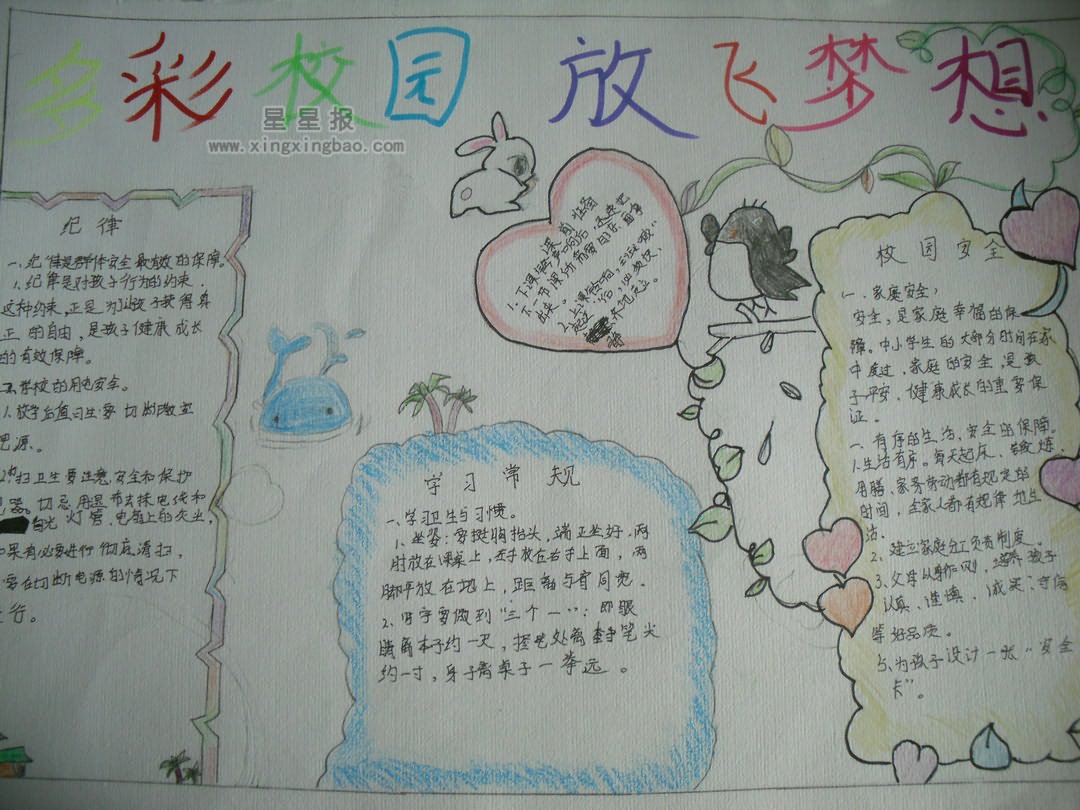 多彩校园 放飞梦想
星星报
www.xingxingbao.com
纪律
一、纪律是群体安全最有效的保障。
1.纪律是对孩子行为的约束.
这种约束,正是为以孩子获得真
正的自由,是孩子健康成长
的有效保障。
二、学校的用电安全。
1.放学后值日生要切断教室
电源。
2.打扫卫生要注意安全和保护
切忌用湿布去抹电线和
日光灯管、电器上的灰尘,
如果有必要进行彻底清扫,
要在切断电源的情况下
进行。
1.下课铃声响后,还未把
下一节课所需要的东西拿
出来。
2.上课铃响,
学习常规
一、学习卫生与习惯。
1、坐姿:要挺胸抬头,端正坐好,两
肘放在课桌上,左手放在右手上面,两
脚平放在地上,距离与肩同宽.
2、写字要做到“三个一”:即眼
睛离本子约一尺,握笔处离笔尖
约一寸,身子离桌子一拳远。
校园安全
一.家庭安全:
安全,是家庭幸福的保
障。中小学生的大部分时间在家
中度过,家庭的安全,是孩
子平安、健康成长的重要保
证。
一.有序的生活,安全的保障。
1.生活有序。每天起床、锻炼
用膳、家务劳动都有规定的
时间,全家人都有规律地生
活。
2、建立家庭分工负责制度。
3、父母以身作则,培养孩子
认真、谨慎、成实、守信
等好品质。
5、为孩子设计一张“安全
卡”。